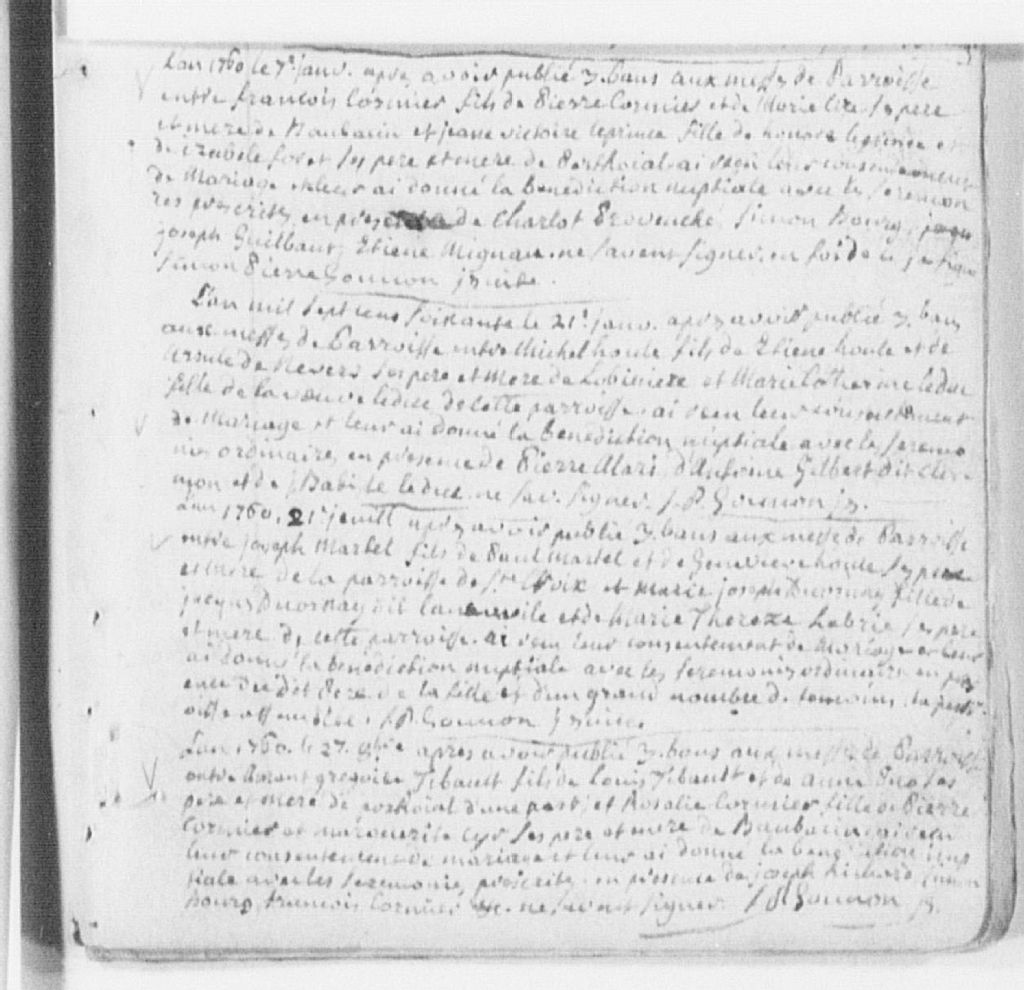 L'an 1760 le 7e janv. après avoir publié 3 bans aux messes de Parroisse
entre françois Cormier fils de Pierre Cormier et de Marie Cire ses pere
et mere de Baubacin et jeane victoire leprince fille de honoré leprince et
de izabele foret ses pere et mere de Portroial ai reçu leur consentement
de Mariage et leur ai donné la benediction nuptiale avec les seremon
ies prescrites en presence de Charlot Provenché, simon Bourg,
joseph Guilbaut, Etiene Mignau. ne savent signer. en foi de ce j'ai signé
simon Pierre Gounon jesuite.
L'an mil sept cens soixante le 21e janv. après avoir publié 3 bans
aux messes de Parroisse entre Michel houle fils de Etiene houle et de
ursule de Nevers ses pere et mere de Lobiniere et Marie Catherine leduc
fille de la veuve leduc de cette parroisse. ai reçu leur consentement
de Mariage et leur ai donné la benediction nuptiale avec les seremo
nies ordinaires en presence de Pierre Alari d'Antoine Gilbert dit Cler
mon et de j Babtiste leduc. ne sav. signer. S. P. Gounon js.
L'an 1760. 21e jeuill après avoir publié 3 bans aux messe de Parroisse
entre joseph Martel fils de Paul Martel et de Genevieve houle ses pere
et mere de la parroisse de Ste Croix et marie joseph Duvernay fille de
jacques Duvernay dit et de Marie Thereze Labrie ses pere
et mere de cette parroisse. ai reçu leur consentement de Mariage et leur
ai donné la benediction nuptiale avec les seremonies ordinaires en pres
ence du dit Pere de la fille et d'un grand nombre de temoins.
S. P. Gounon jesuite.
L'an 1760. le 27. 8bre après avoir publié 3 bans aux messe de Parroisse
entre Amant gregoire Tibault fils de Louis Tibault et de anne ses
pere et mere de portroial d'une part, et Rosalie Cormier fille de Pierre
Cormier et marguerite Cyr ses pere et mere de Baubacin. ai reçu
leur consentement de mariage et leur ai donné la benediction nup
tiale avec les seremonies prescrites en presence de joseph Richard, simon
Bourg, francois Cormier ne savent signer S P Gounon js.